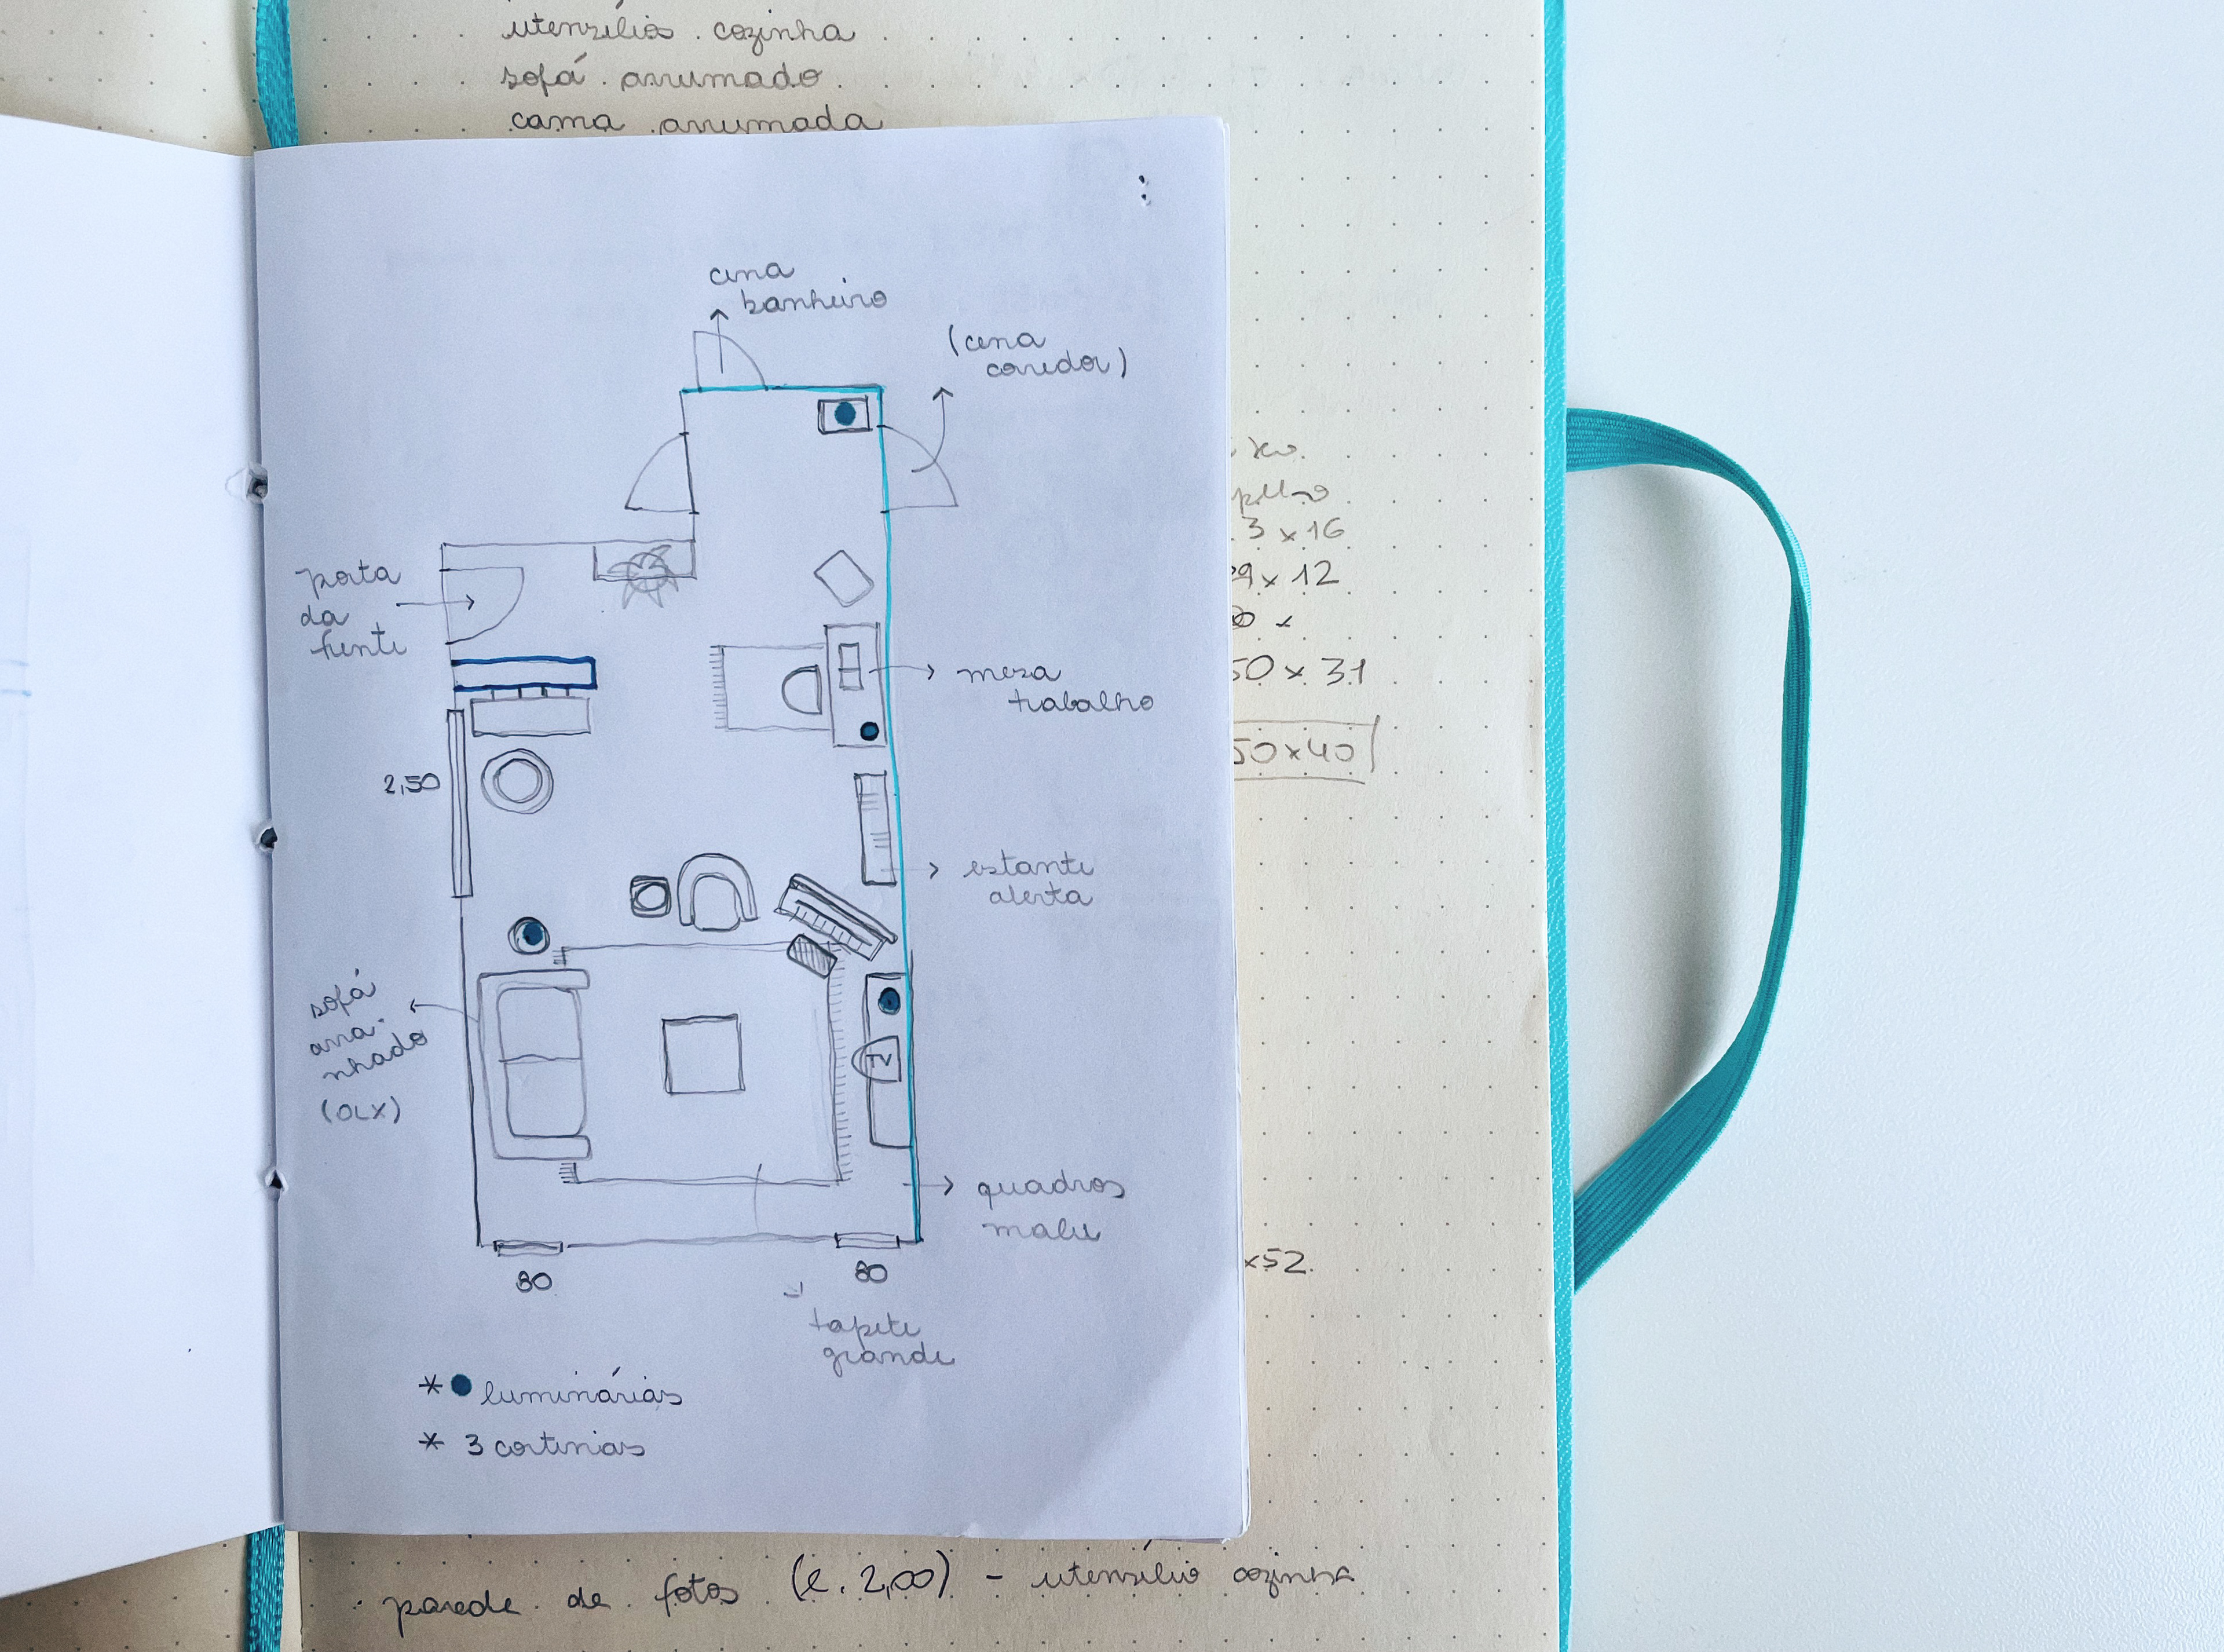 utenzílios cozinha
sofá arrumado
cama arrumada
cena
banheiro
(cena
corredor)
porta
da
frente
mesa
trabalho
2,50
estante
aberta
sofá
arra-
nhado
(OLX)
TV
quadros
malu
80
80
tapete
grande
* luminárias
* 3 cortinas
3 x 16
9 x 12
50 x 31
50x40
x52
parede de fotos (l. 2,00) - utenzílio cozinha